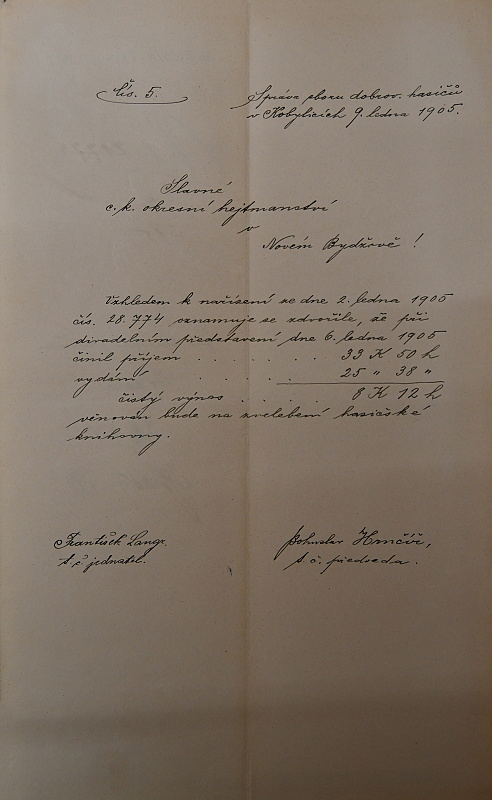 Čís. 5.
Správa sboru dobrov. hasičů
v Kobylicích 9. ledna 1905.
Slavné
c. k. okresní hejtmanství
v
Novém Bydžově !
Vzhledem k nařízení ze dne 2. ledna 1905
čís. 28.774 oznamuje se zdvořile, že při
divadelním představení dne 6. ledna 1905
činil příjem . . . . . . 33 K 50 h
vydání . . . . . 25 " 38 "
čistý výnos . . . . 8 K 12 h
věnován bude na zvelebení hasičské
knihovny.
František Langr.
t. č. jednatel.
Bohuslav
t. č. předseda.